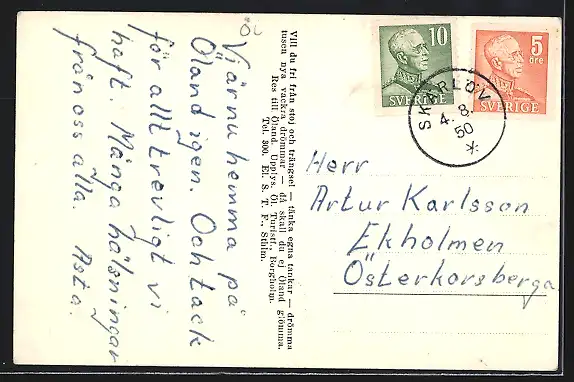 ÖL
Vi är nu hemma på
Öland igen. Och tack
för allt trevligt vi
haft. Många hälsningar
från oss alla. Asta.
Vill du fri från stoj och trängsel — tänka egna tankar — drömma
tusen nya vackra drömmar — då skall du ej Öland glömma.
Res till Öland. Upplys. Öl. Turistf., Borgholm.
Tel. 300. El. S. T. F., Sthlm.
10
SVERIGE
5
öre
SVERIGE
SKÄRLÖV
4. 8.
50
Herr
Artur Karlsson
Ekholmen
Österkorsberga